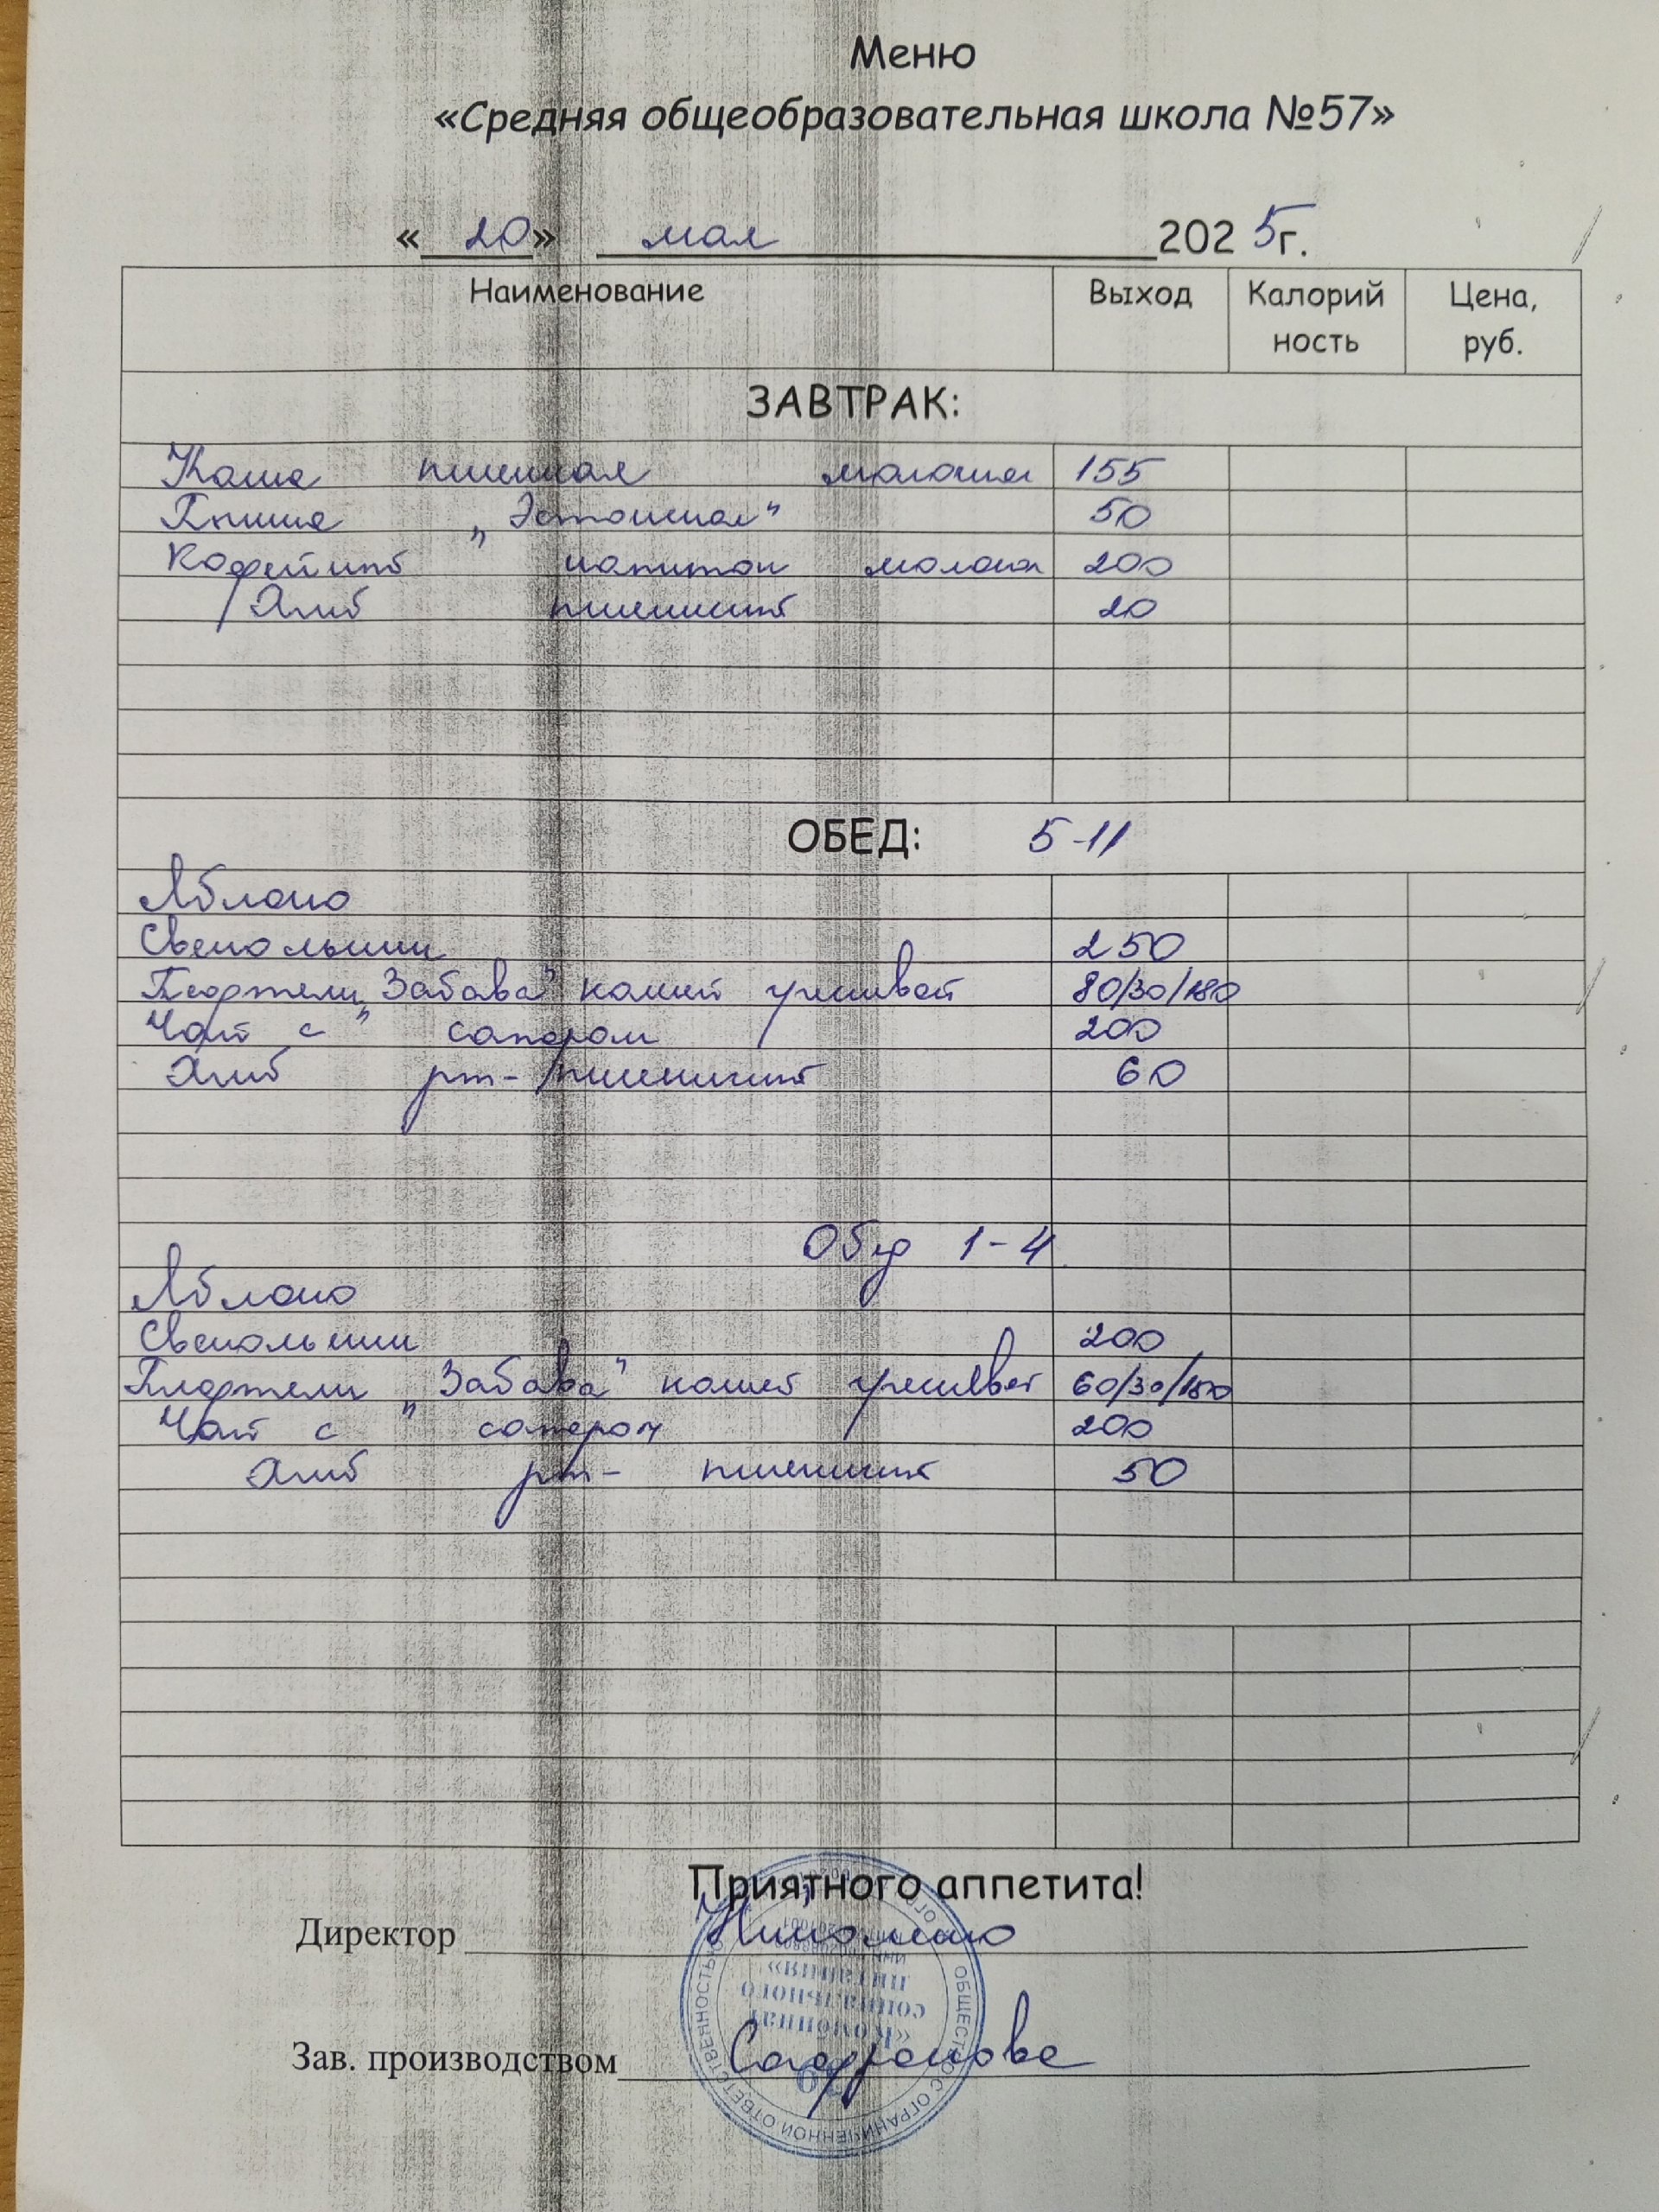 Меню
«Средняя общеобразовательная школа №57»
«20» мая 2025г.
Наименование Выход Калорий ность Цена, руб.
ЗАВТРАК:
Каша пшенная молочная 155
"Эстонская" 50
Кофейный напиток молоком 200
Хлеб пшеничный 20
ОБЕД: 5-11
Яблоко
Свекольник 250
"Забава" кашей гречневой 80/30/180
Чай с сахаром 200
Хлеб рж-пшеничный 60
Обед 1-4
Яблоко
Свекольник 200
"Забава" кашей гречневой 60/30/150
Чай с сахаром 200
Хлеб рж- пшеничный 50
Приятного аппетита!
Директор
Зав. производством Сафронова
ОБЩЕСТВО С ОГРАНИЧЕННОЙ ОТВЕТСТВЕННОСТЬЮ
социального
питания»